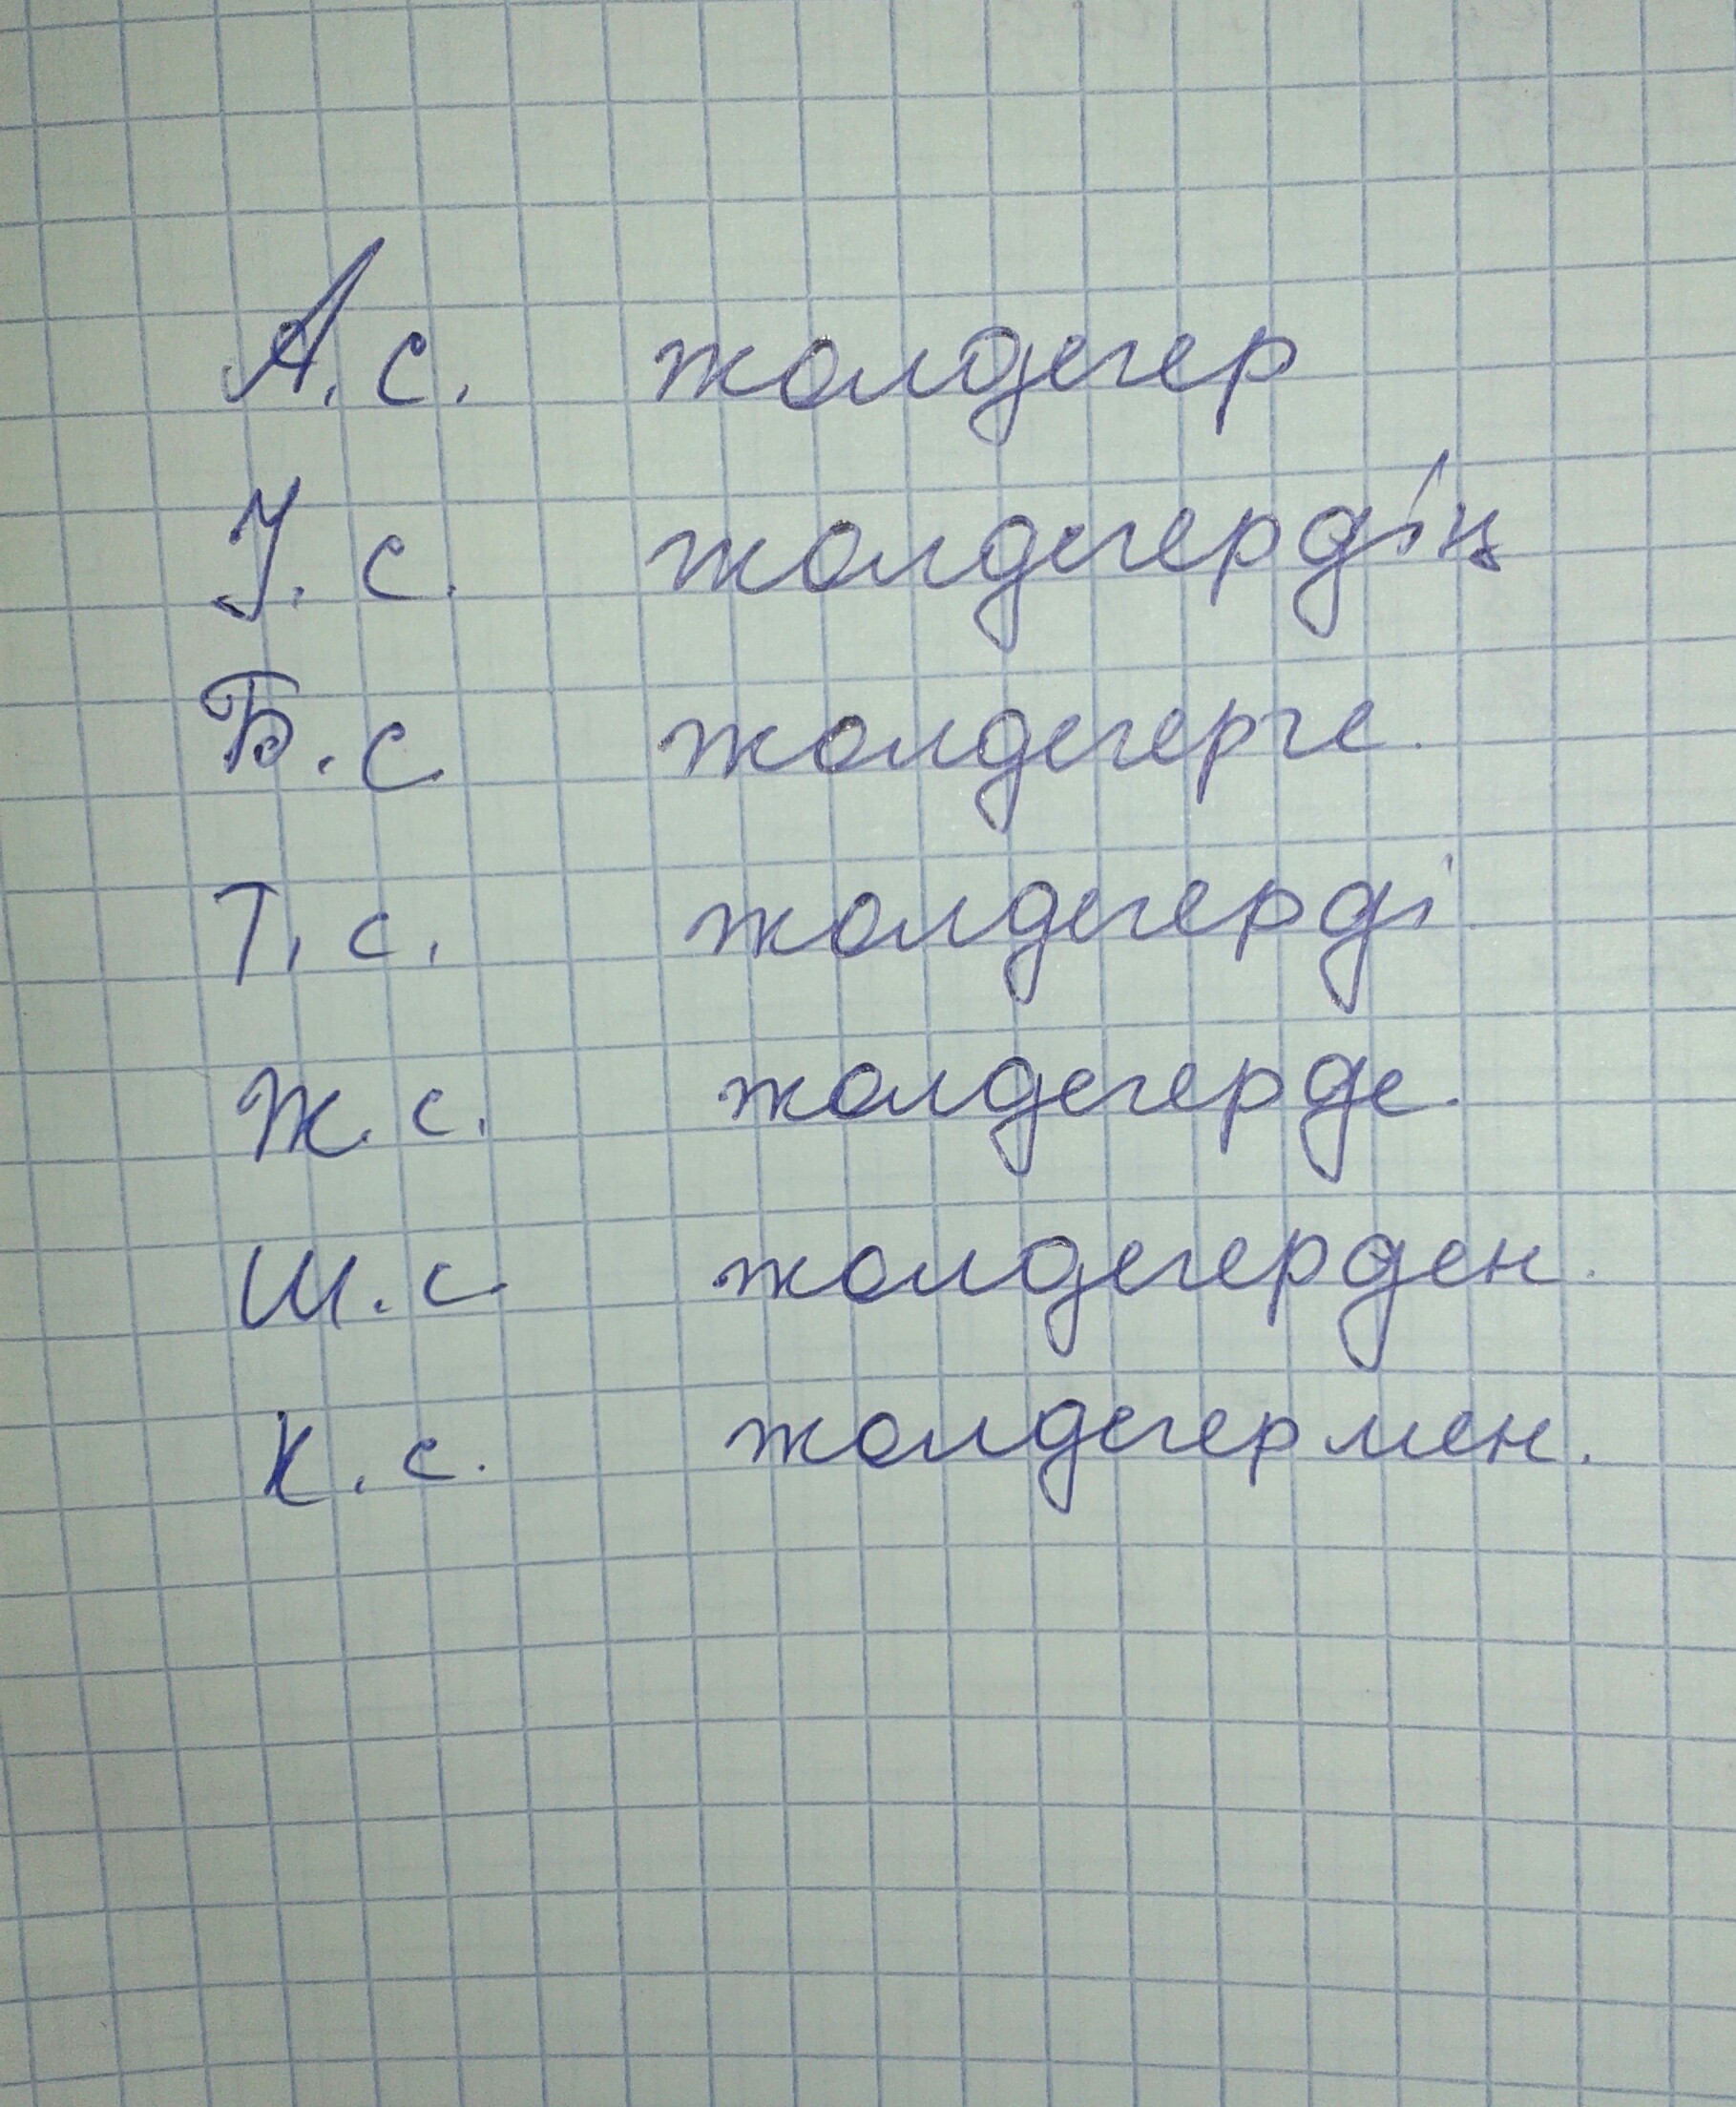 А.с. жолдегер
У.с. жолдегердің
Б.с жолдегерге.
Т.с. жолдегерді.
Ж.с. жолдегерде.
Ш.с. жолдегерден.
К.с. жолдегермен.